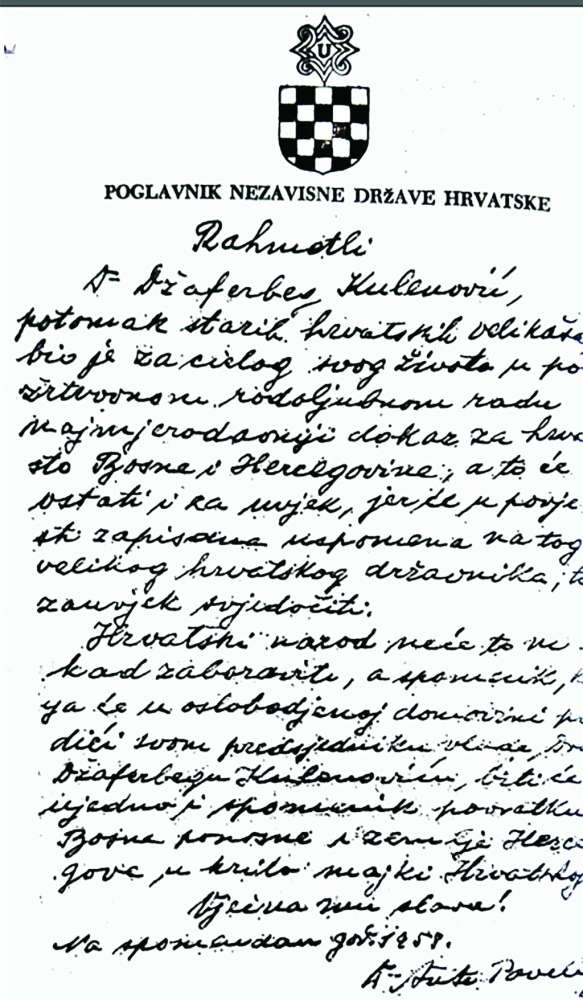 U
POGLAVNIK NEZAVISNE DRŽAVE HRVATSKE
Rahmetli
Dr Džaferbeg Kulenović,
potomak starih hrvatskih velikaša
bio je za cielog svog života u po
žrtvovnom rodoljubnom radu
najmjerodavniji dokaz za hrva
sto Bosne i Hercegovine, a to će
ostati i za uvjek, jer će u povje
sti zapisana uspomena na tog
velikog hrvatskog državnika, t
zauvjek svjedočiti.
Hrvatski narod neće to ni-
kad zaboraviti, a spomenik, k
ja će u oslobodjenoj domovini po
dići svom predsjedniku vlade, Dr
Džaferbegu Kulenoviću, biti će
ujedno i spomenik povratku
Bosne ponosne i zemlje Herce
gove u krilo majke Hrvatske
Vječna mu slava!
Na spomendan god. 1959.
Dr Ante Pavelić